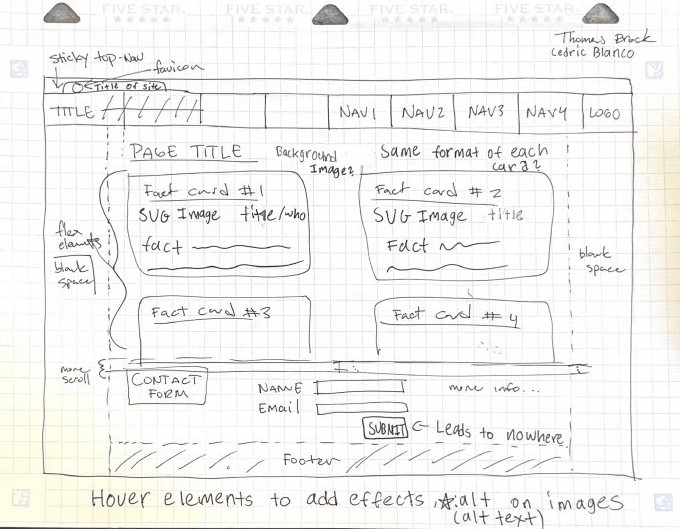 FIVE STAR. FIVE STAR. FIVE STAR. FIVE STAR.
Thomas Brock
Cedric Blanco
sticky top-nav
favicon
Title of site
TITLE NAV1 NAV2 NAV3 NAV4 LOGO
PAGE TITLE
Background
Image?
Same format of each
card?
Fact card #1
SVG Image title/who
fact
Fact card #2
SVG Image title
Fact
flex
elements
blank
space
blank
space
Fact card #3
Fact card #4
more
scroll
CONTACT
FORM
NAME
Email
more info...
SUBMIT ← Leads to nowhere
Footer
Hover elements to add effects, ☆.alt on images
(alt text)